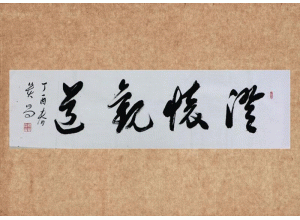 澄懷觀道
丁酉春月